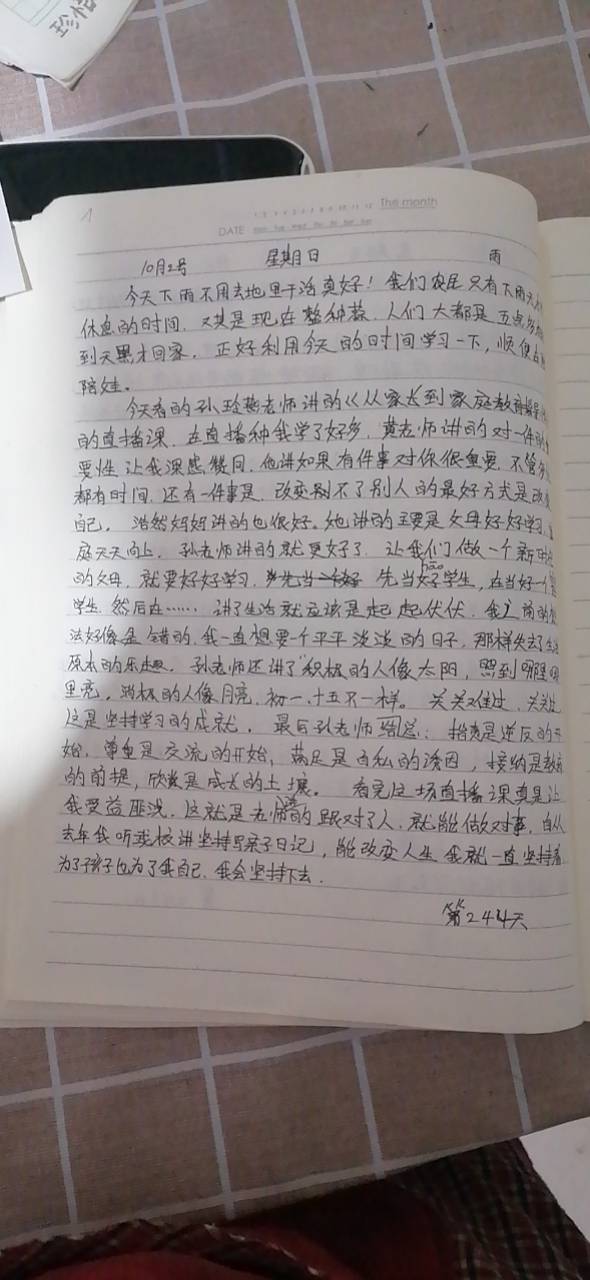 珍惜
1 2 3 4 5 6 7 8 9 10 11 12 The month
DATE Mon Tue Wed Thu Fri Sat Sun
10月2号 星期日 雨
今天下雨不用去地里干活真好！我们农民只有下雨天
休息的时间，尤其是现在整种蒜，人们大都是五点
到天黑才回家，正好利用今天的时间学习一下，顺便
陪娃。
今天看的孙玲燕老师讲的《从家长到家庭教育
的直播课，在直播种我学了好多，黄老师讲的对一件
要性让我深感赞同，他讲如果有件事对你很重要，不管
都有时间，还有一件事是，改变别不了别人的最好方式是改
自己，浩然妈妈讲的也很好。她讲的主要是父母好好学习，
庭天天向上，孙老师讲的就更好了，让我们做一个新时
的父母，就要好好学习，先当好学生，在当好一个
hǎo
学生，然后在……讲了生活就应该是起起伏伏，我之前的
法好像是错的，我一直想要一个平平淡淡的日子，那样失去了
原本的乐趣，孙老师还讲了积极的人像太阳，照到哪里
里亮，消极的人像月亮，初一、十五不一样。关关难过，关关
这是坚持学习的成就，最后孙老师总：指责是逆反的开
始，尊重是交流的开始，满足是自私的诱因，接纳是教育
的前提，欣赏是成长的土壤。看完这场直播课真是让
我受益匪浅，这就是老师的跟对了人，就能做对事，自从
去年我听班校讲坚持写亲子日记，能改变人生我就一直坚持着
为了孩子也为了我自己，我会坚持下去.
第244天